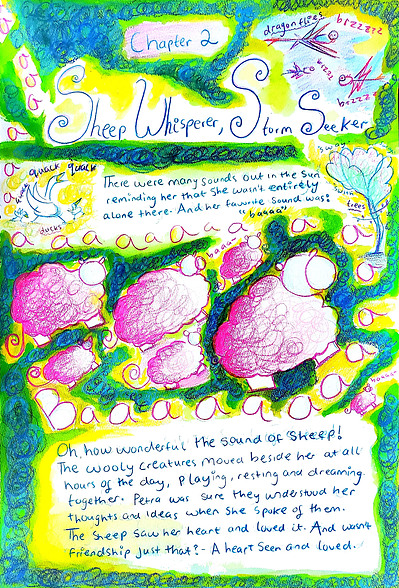 Chapter 2
dragonflies
brzzzzz
brzzz
brzzzzz
Sheep Whisperer, Storm Seeker
quack quack
ducks
There were many sounds out in the Sun
reminding her that She wasn't entirely
alone there. And her favorite sound was:
"baaaa"
sway
trees
a a a a a a a a a a a
baaaa
baaaa
Baaaaaaaa
Oh, how wonderful the sound of Sheep!
The wooly creatures moved beside her at all
hours of the day, playing, resting and dreaming
together. Petra was sure they understood her
thoughts and ideas when She spoke of them.
The Sheep Saw her heart and loved it. And wasn't
friendship just that? - A heart Seen and loved.